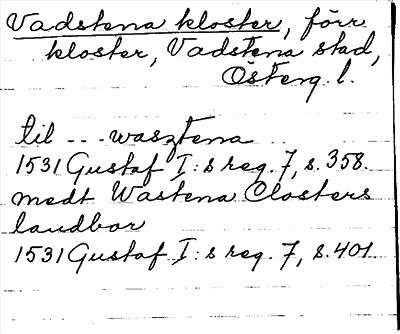 Vadstena kloster, förr
kloster, Vadstena stad,
Österg. l.
til - - - wasztena
1531 Gustaf I:s reg. 7, s. 358.
medt Wastena Closters
landbor
1531 Gustaf I:s reg. 7, s. 401.